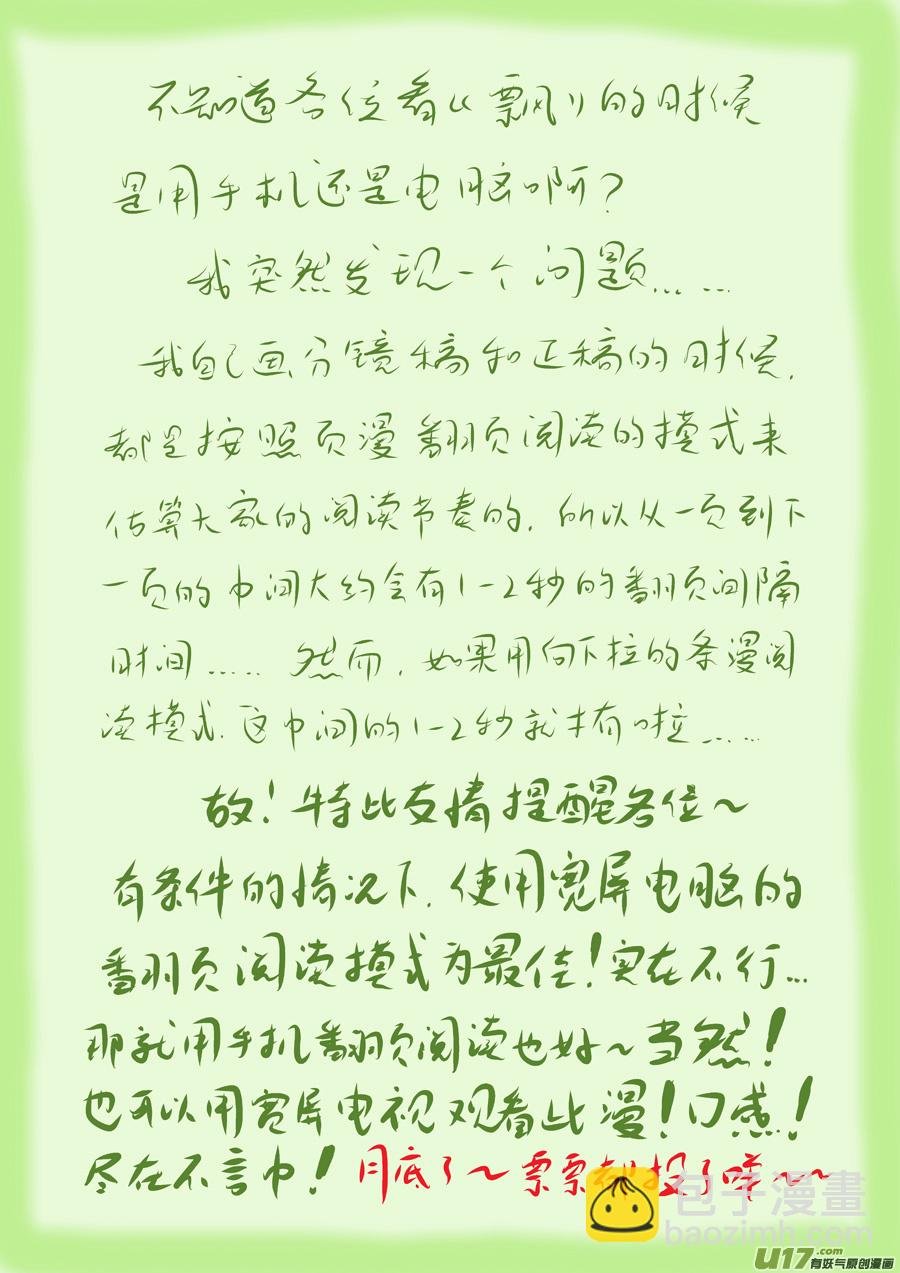 不知道各位看《飘》的时候
是用手机还是电脑啊?
我突然发现一个问题……
我自己画分镜稿和正稿的时候,
都是按照页漫翻页阅读的模式来
估算大家的阅读节奏的,所以从一页到下
一页的中间大约会有1-2秒的翻页间隔
时间…… 然而,如果用向下拉的条漫阅
读模式,这中间的1-2秒就木有啦……
故!特此友情提醒各位~
有条件的情况下,使用宽屏电脑的
翻页阅读模式为最佳!实在不行…
那就用手机翻页阅读也好~当然!
也可以用宽屏电视观看此漫!口感!
尽在不言中!月底了~票票都投了哗~~
包子漫畫
baozimh.com
U17.com
有妖气原创漫画